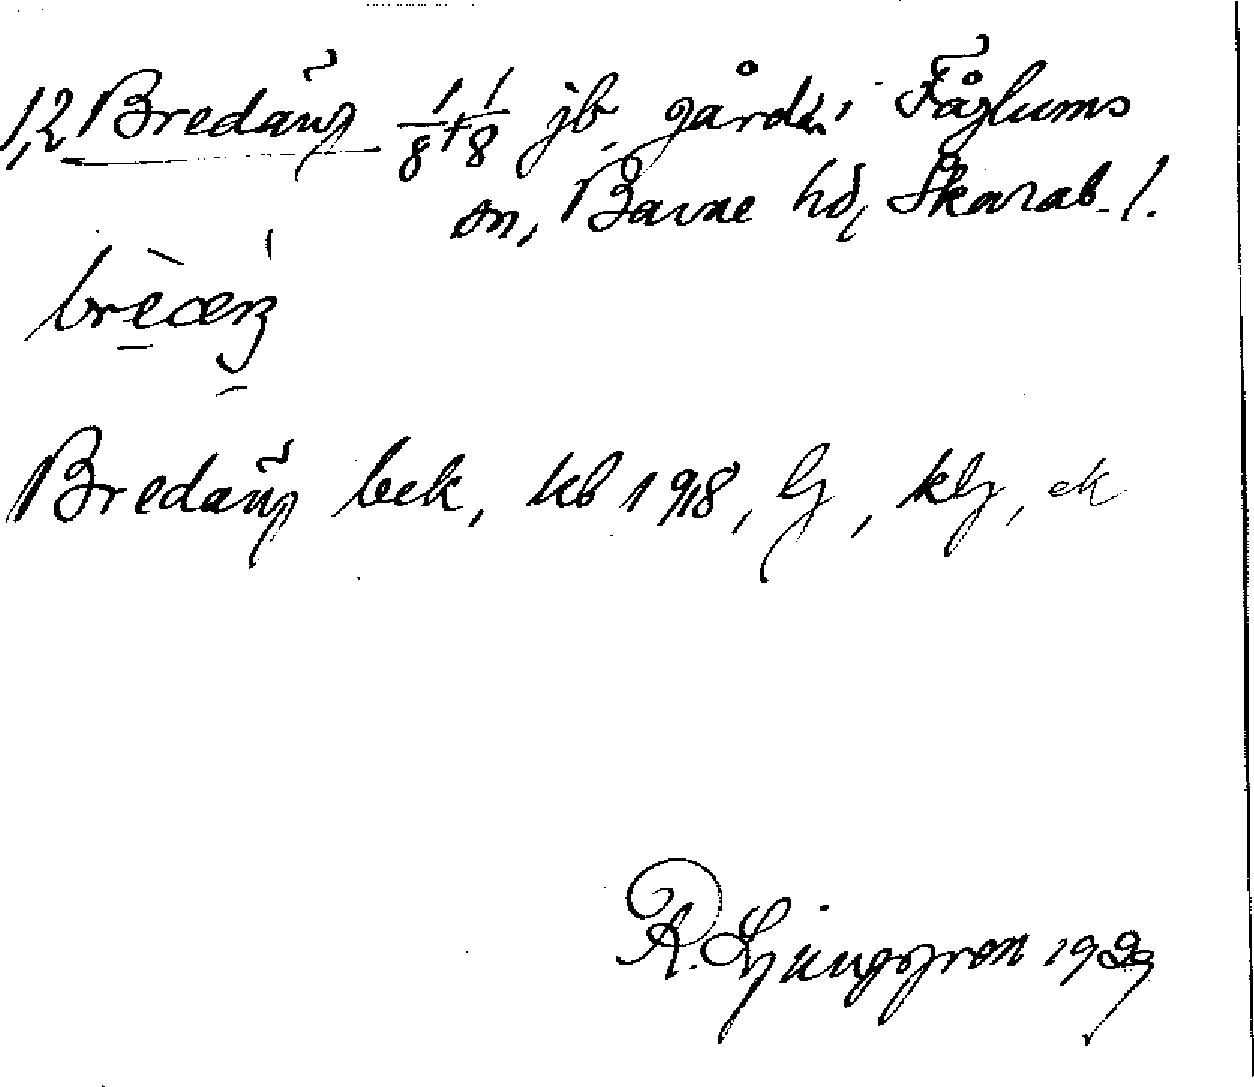 1,2 Bredäng 1/8+1/8 jb gårdar i Fåglums
sn, Barne hd, Skarab. l.
Bredäng bek, kb 1918, lj, klj, ek
R. Ljunggren 1929